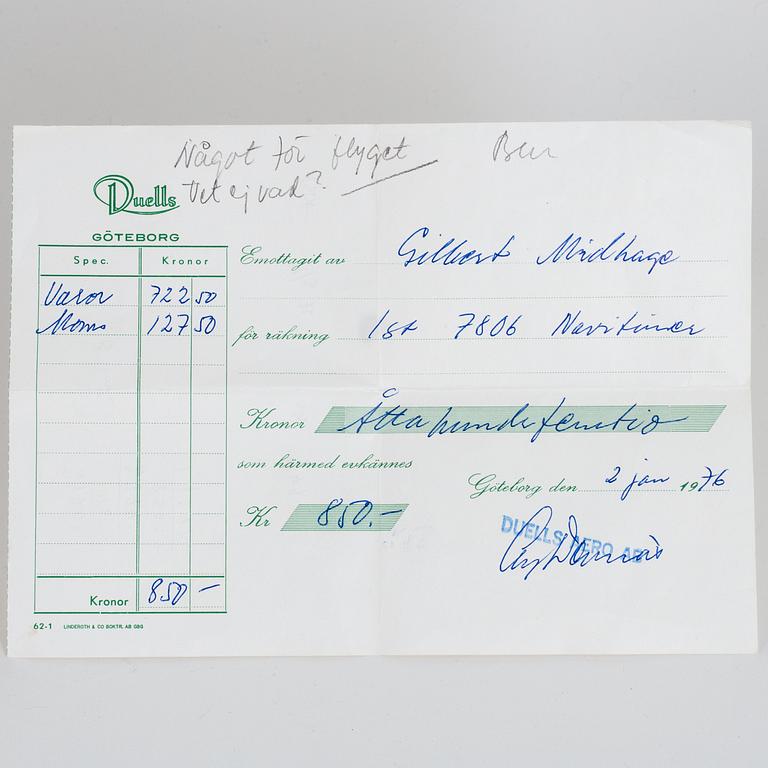 Något för flyget
Vet ej vad?
Duells
GÖTEBORG
Spec. Kronor
Varor 722 50
Moms 127 50
Kronor 850 —
62-1 LINDEROTH & CO BOKTR. AB GBG
Emottagit av Gilbert Midhage
för räkning 1st 7806 Navitimer
Kronor Åtta hundrafemtio
som härmed erkännes
Göteborg den 2 jan 1976
Kr 850.—
DUELLS AERO AB